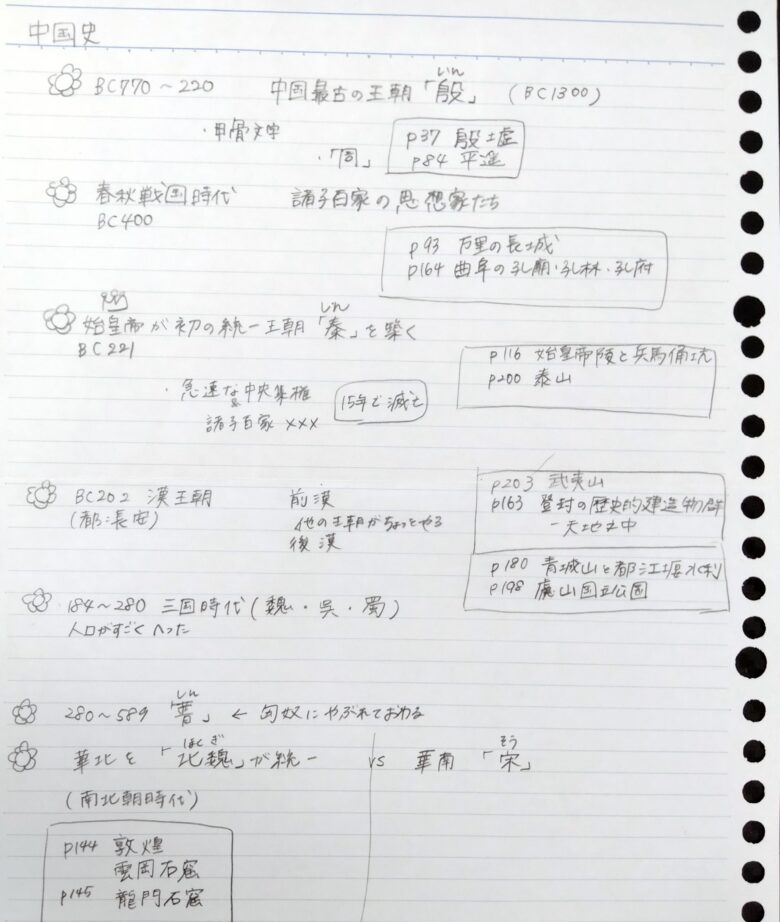 中国史
BC770～220 中国最古の王朝「殷」(BC1300)
いん
・甲骨文字
・「周」
p37 殷墟
p84 平遥
春秋戦国時代 諸子百家の思想家たち
BC400
p93 万里の長城
p164 曲阜の孔廟・孔林・孔府
始皇帝が初の統一王朝「秦」を築く
しん
BC221
p116 始皇帝陵と兵馬俑坑
p200 泰山
・急速な中央集権
&
諸子百家 ×××
15年で滅亡
BC202 漢王朝
(都:長安)
前漢
他の王朝がちょっとやる
後漢
p203 武夷山
p163 登封の歴史的建造物群
-天地之中
p180 青城山と都江堰水利
p198 廬山国立公園
184～280 三国時代(魏・呉・蜀)
人口がすごくへった
280～589 「晋」 ← 匈奴にやぶれておわる
しん
華北を「北魏」が統一 vs 華南「宋」
ほくぎ そう
(南北朝時代)
p144 敦煌
雲岡石窟
p145 龍門石窟